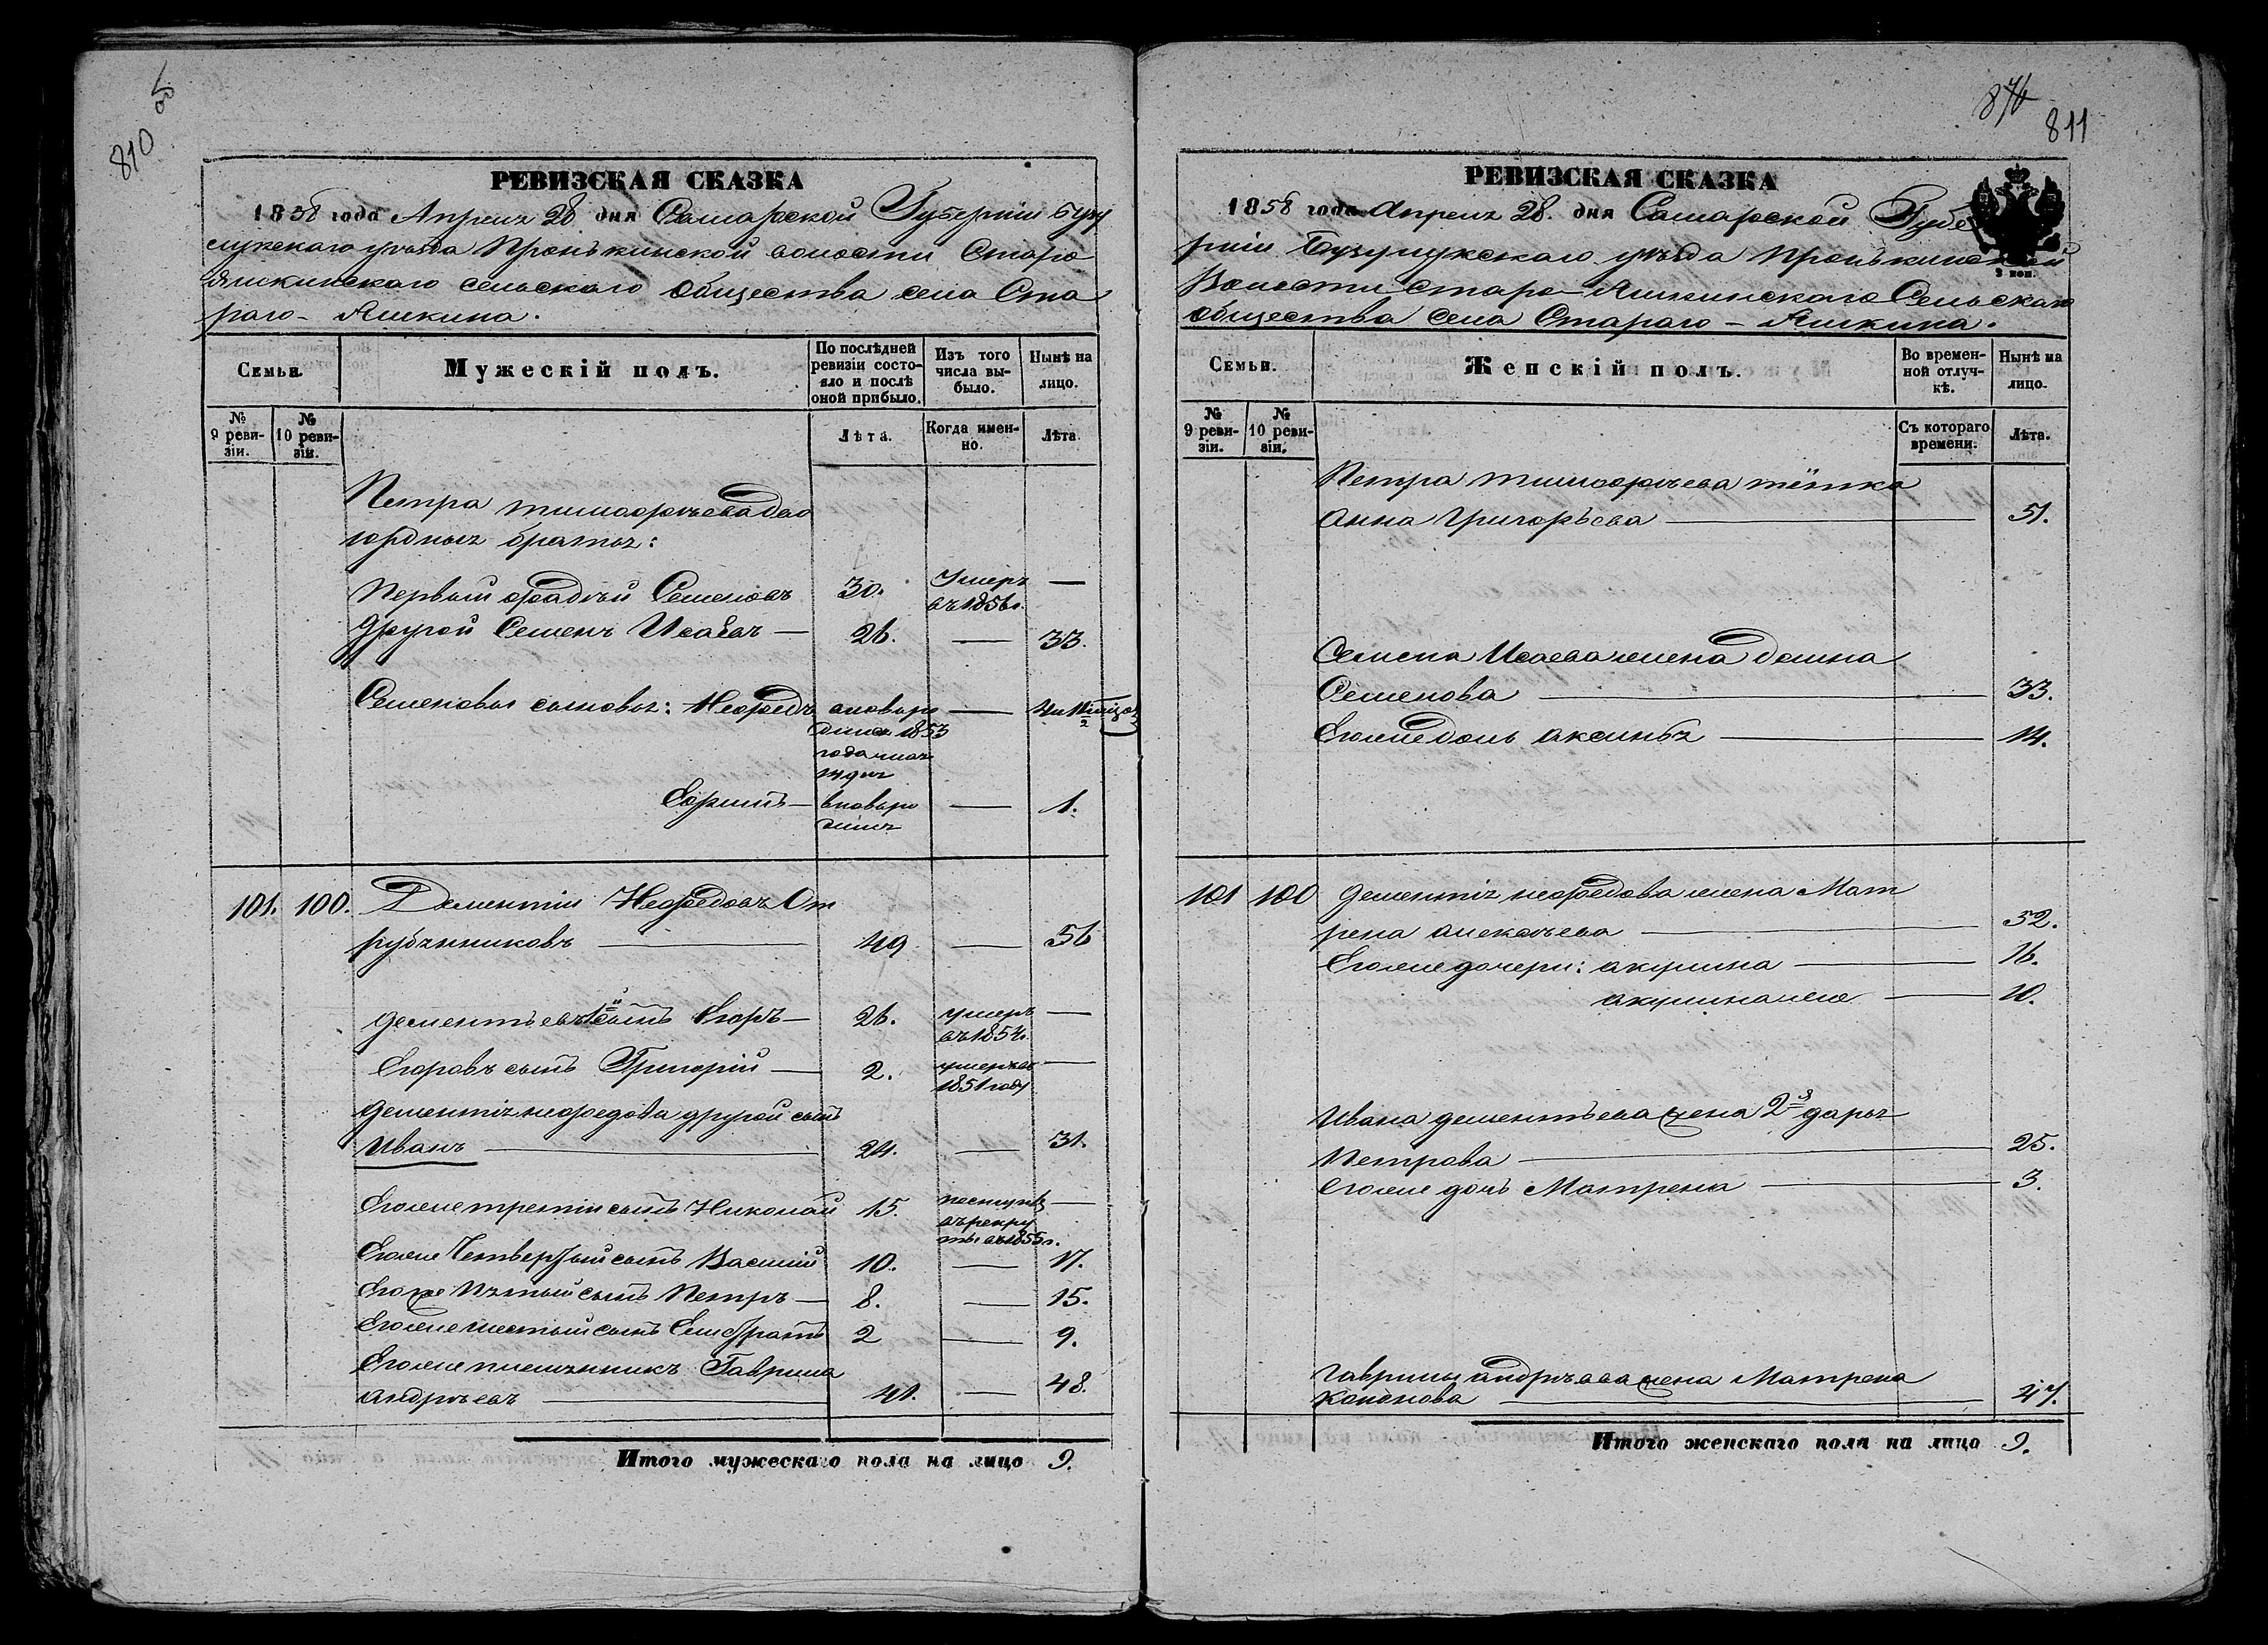 810
РЕВИЗСКАЯ СКАЗКА
1858 года Апреля 28 дня Самарской Губерніи Бузу
лукскаго уѣзда Пронькинской волости Старо
Яшкинскаго сельскаго общества села Ста
раго - Яшкина.
Семьи.
Мужескій полъ.
По послѣдней ревизіи состояло и послѣ оной прибыло.
Изъ того числа выбыло.
Нынѣ на лицо.
№ 9 ревизіи.
№ 10 ревизіи.
Лѣта.
Когда именно.
Лѣта.
Петра Тимофѣева дво
юрдныя братья:
Первый Фадѣй Семеновъ 30. Умеръ въ 1856 г. —
Другой Семенъ Исаевъ — 26. — 33.
Семеновы сыновья: Нефедъ
1853
года
— 4
вновьро — 1.
101. 100. Дементій Нефедовъ От
рубянниковъ — 49 — 56
Дементьевъ 1й сынъ Егоръ — 26. умеръ —
въ 1854 г.
Егоровъ сынъ Григорій — 2. умеръ въ —
1851 году
Дементія нефедова другой сынъ
Иванъ — 24. — 31.
Егоже третій сынъ Николай 15. поступ. —
въ рекру
ты въ 1855 г.
Егоже Четвертый сынъ Василій 10. — 17.
Егоже Пятый сынъ Петръ — 8. — 15.
Егоже шестый сынъ 2 — 9.
Егоже племянникъ Гаврила
Андрѣевъ — 41. — 48.
Итого мужескаго пола на лицо 9.
876
811
РЕВИЗСКАЯ СКАЗКА
1858 года Апреля 28. дня Самарской Губе
рніи Бузулукскаго уѣзда Пронькинской
Волости Старо - Яшкинскаго Сельскаго
общества села Стараго - Яшкина.
3 коп.
Семьи.
Женскій полъ.
Во временной отлучкѣ.
Нынѣ на лицо.
№ 9 ревизіи.
№ 10 ревизіи.
Съ котораго времени.
Лѣта.
Петра Тимофѣева тётка
Анна Григорьева — 51.
Семена Исаева жена Домна
Семенова — 33.
Егоже дочь Аксинья — 14.
101 100 Дементія нефедова жена Мат
рена Алексѣева — 52.
Егоже дочери: Акулина — 16.
Акулина же — 10.
Ивана Дементьева жена 2я Дарья
Петрова — 25.
Егоже дочь Матрена — 3.
Гаврилы Андрѣева жена Матрена
Кононова — 47.
Итого женскаго пола на лицо 9.